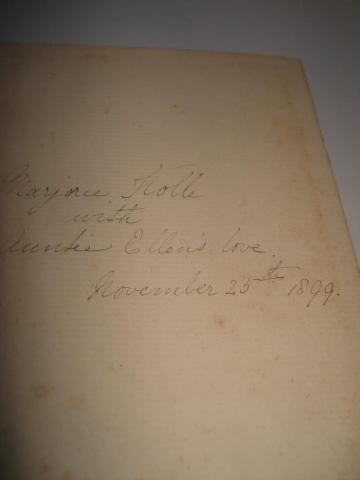 Marjorie Holle
with
Auntie Ellen's love.
November 25th 1899.